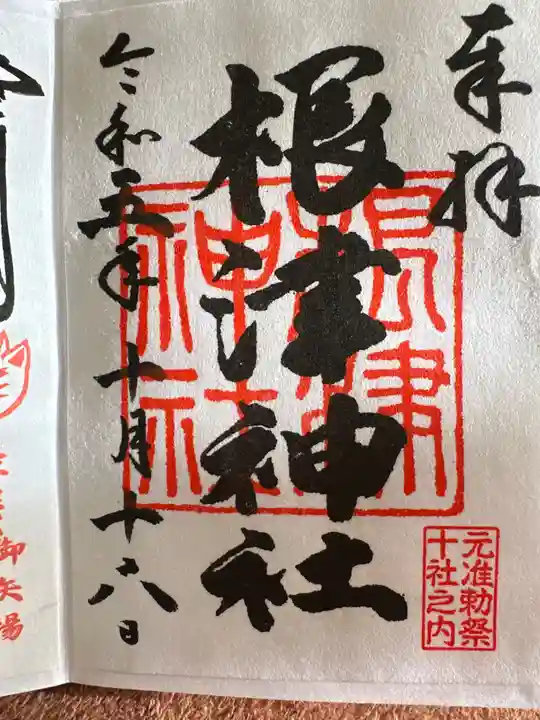 奉拝
根津神社
根津
神社
元准勅祭
十社之内
令和五年十月十八日
御矢場